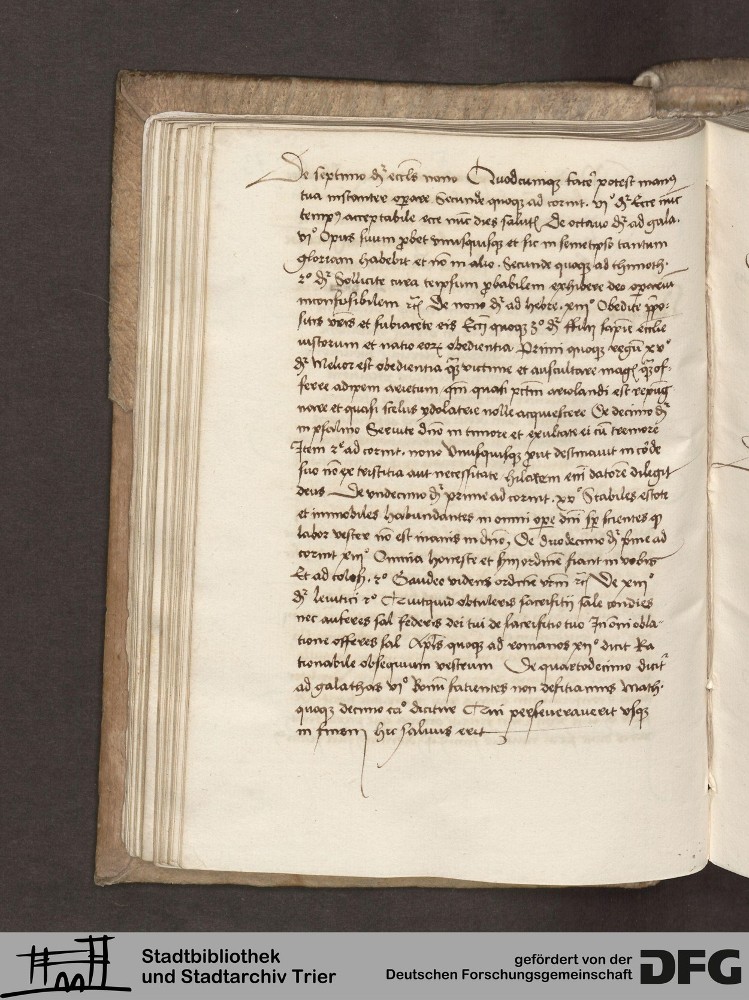 De septimo dr eccls nono Quodcumqz facer potest manus
tua instanter operare Secunde quoqz ad corint. vi° dr Ecce nuc
tempus acceptabile ece nuc dies salut De octauo dr ad gala.
vi° Opus suum probet vnusquisqz et sic in semetipso tantum
gloriam habebit et no in alio. Secunde quoqz ad thimoth.
2° dr Sollicite cura teipsum probabilem exhibere deo operariu
inconfusibilem rc De nono dr ad hebre. xiii° Obedite prepo-
sitis vris et subiacete eis Ecci quoqz 3° dr ffilii sapie ecclie
iustorum et natio eorz obedientia. Primi quoqz regu xv°
dr Melior est obedientia qz victime et auscultare mag qz of-
ferre adipem arietum qm quasi pctm ariolandi est repug
nare et quasi scelus ydolatrie nolle acquiescere De decimo dr
in psalmo Seruite dno in timore et exultate ei cu tremore
Item 2e ad corint. nono Vnusquisqz prout destinauit in corde
suo no ex tristitia aut necessitate hilarem eni datore diligit
deus De vndecimo dr prime ad corint. xv° Stabiles estote
et immobiles habundantes in omni ope dni sp scientes q
labor vester no est inanis in dno, De duodecimo dr prime ad
corint xiii° Omnia honeste et sm ordinem fiant in vobis
Et ad coloss. 2° Gaudeo videns ordine vrm rc De xiii°
dr leuitici 2° Quitquid obtuleris sacrifitii sale condies
nec auferes sal federis dei tui de sacrifitio tuo In oni obla-
tione offeres sal Apls quoqz ad romanos xii° dicit Ra
tionabile obsequium vestrum De quartodecimo dicit
ad galathas vi° Bonu facientes non defitiamus Math.
quoqz decimo ca° dicitur Qui perseuerauerit vsqz
in finem hic saluus erit
Stadtbibliothek
und Stadtarchiv Trier
gefördert von der
Deutschen Forschungsgemeinschaft
DFG